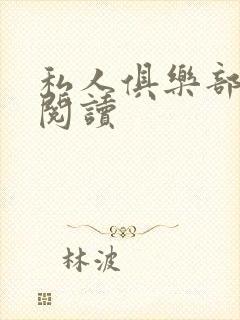 私人俱樂部
閱讀
林波